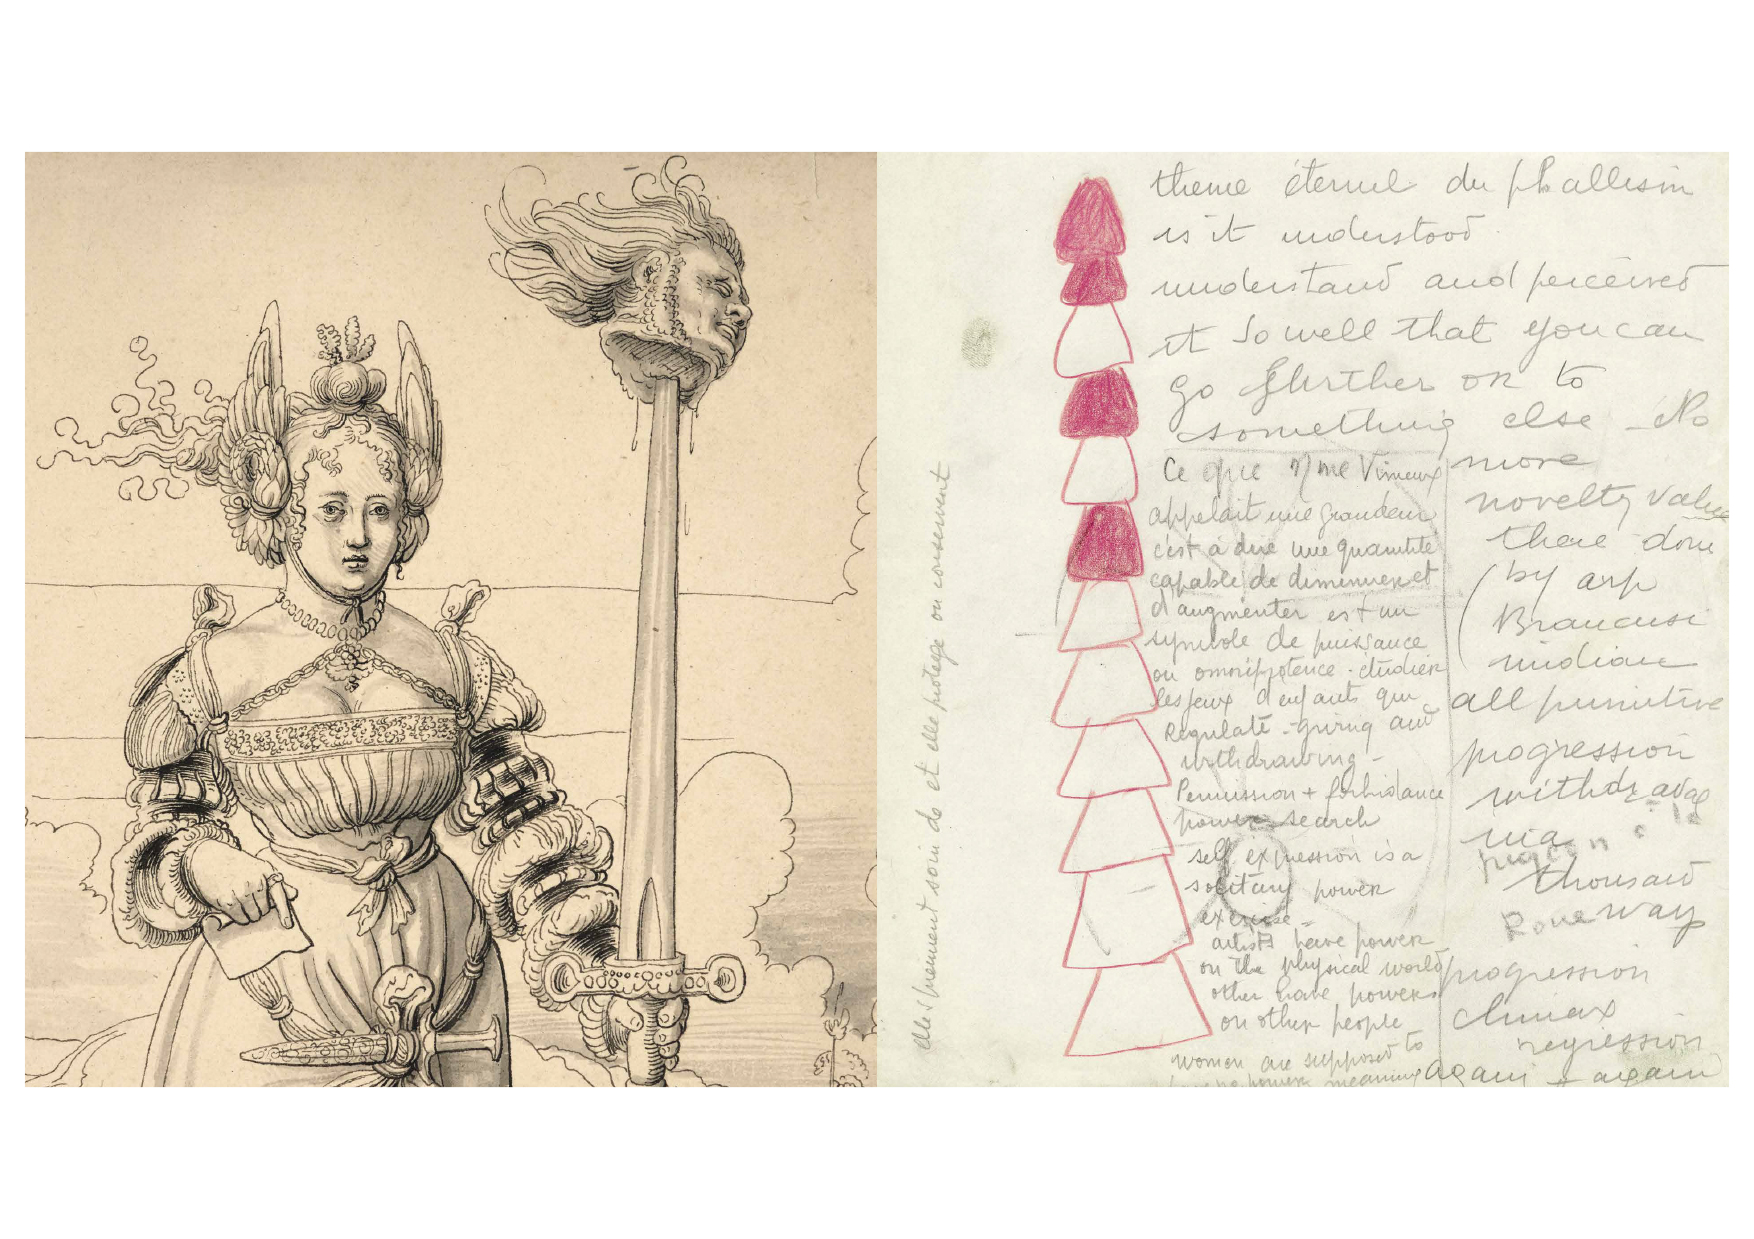 theme éternel du phallism
is it understood
understand and perceived
it so well that you can
go further on to
something else - No
more
novelty value
there done
(by arp
Brancusi
indian
all primitive
progression
withdrawal
via
thousand
way
progression
climax
regression
again + again
Ce que Mme Vimeux
appelait une grandeur
c'est à dire une quantité
capable de diminuer et
d'augmenter est un
symbole de puissance
ou omnipotence - étudier
les jeux d'enfants qui
Regulate - giving and
withdrawing -
Permission + forbidance
power search
self expression is a
solitary power
exercise -
artists have power
on the physical world
other have powers
on other people
women are supposed to
have no power meaning
elles prennent soin de et elle protège ou conservent